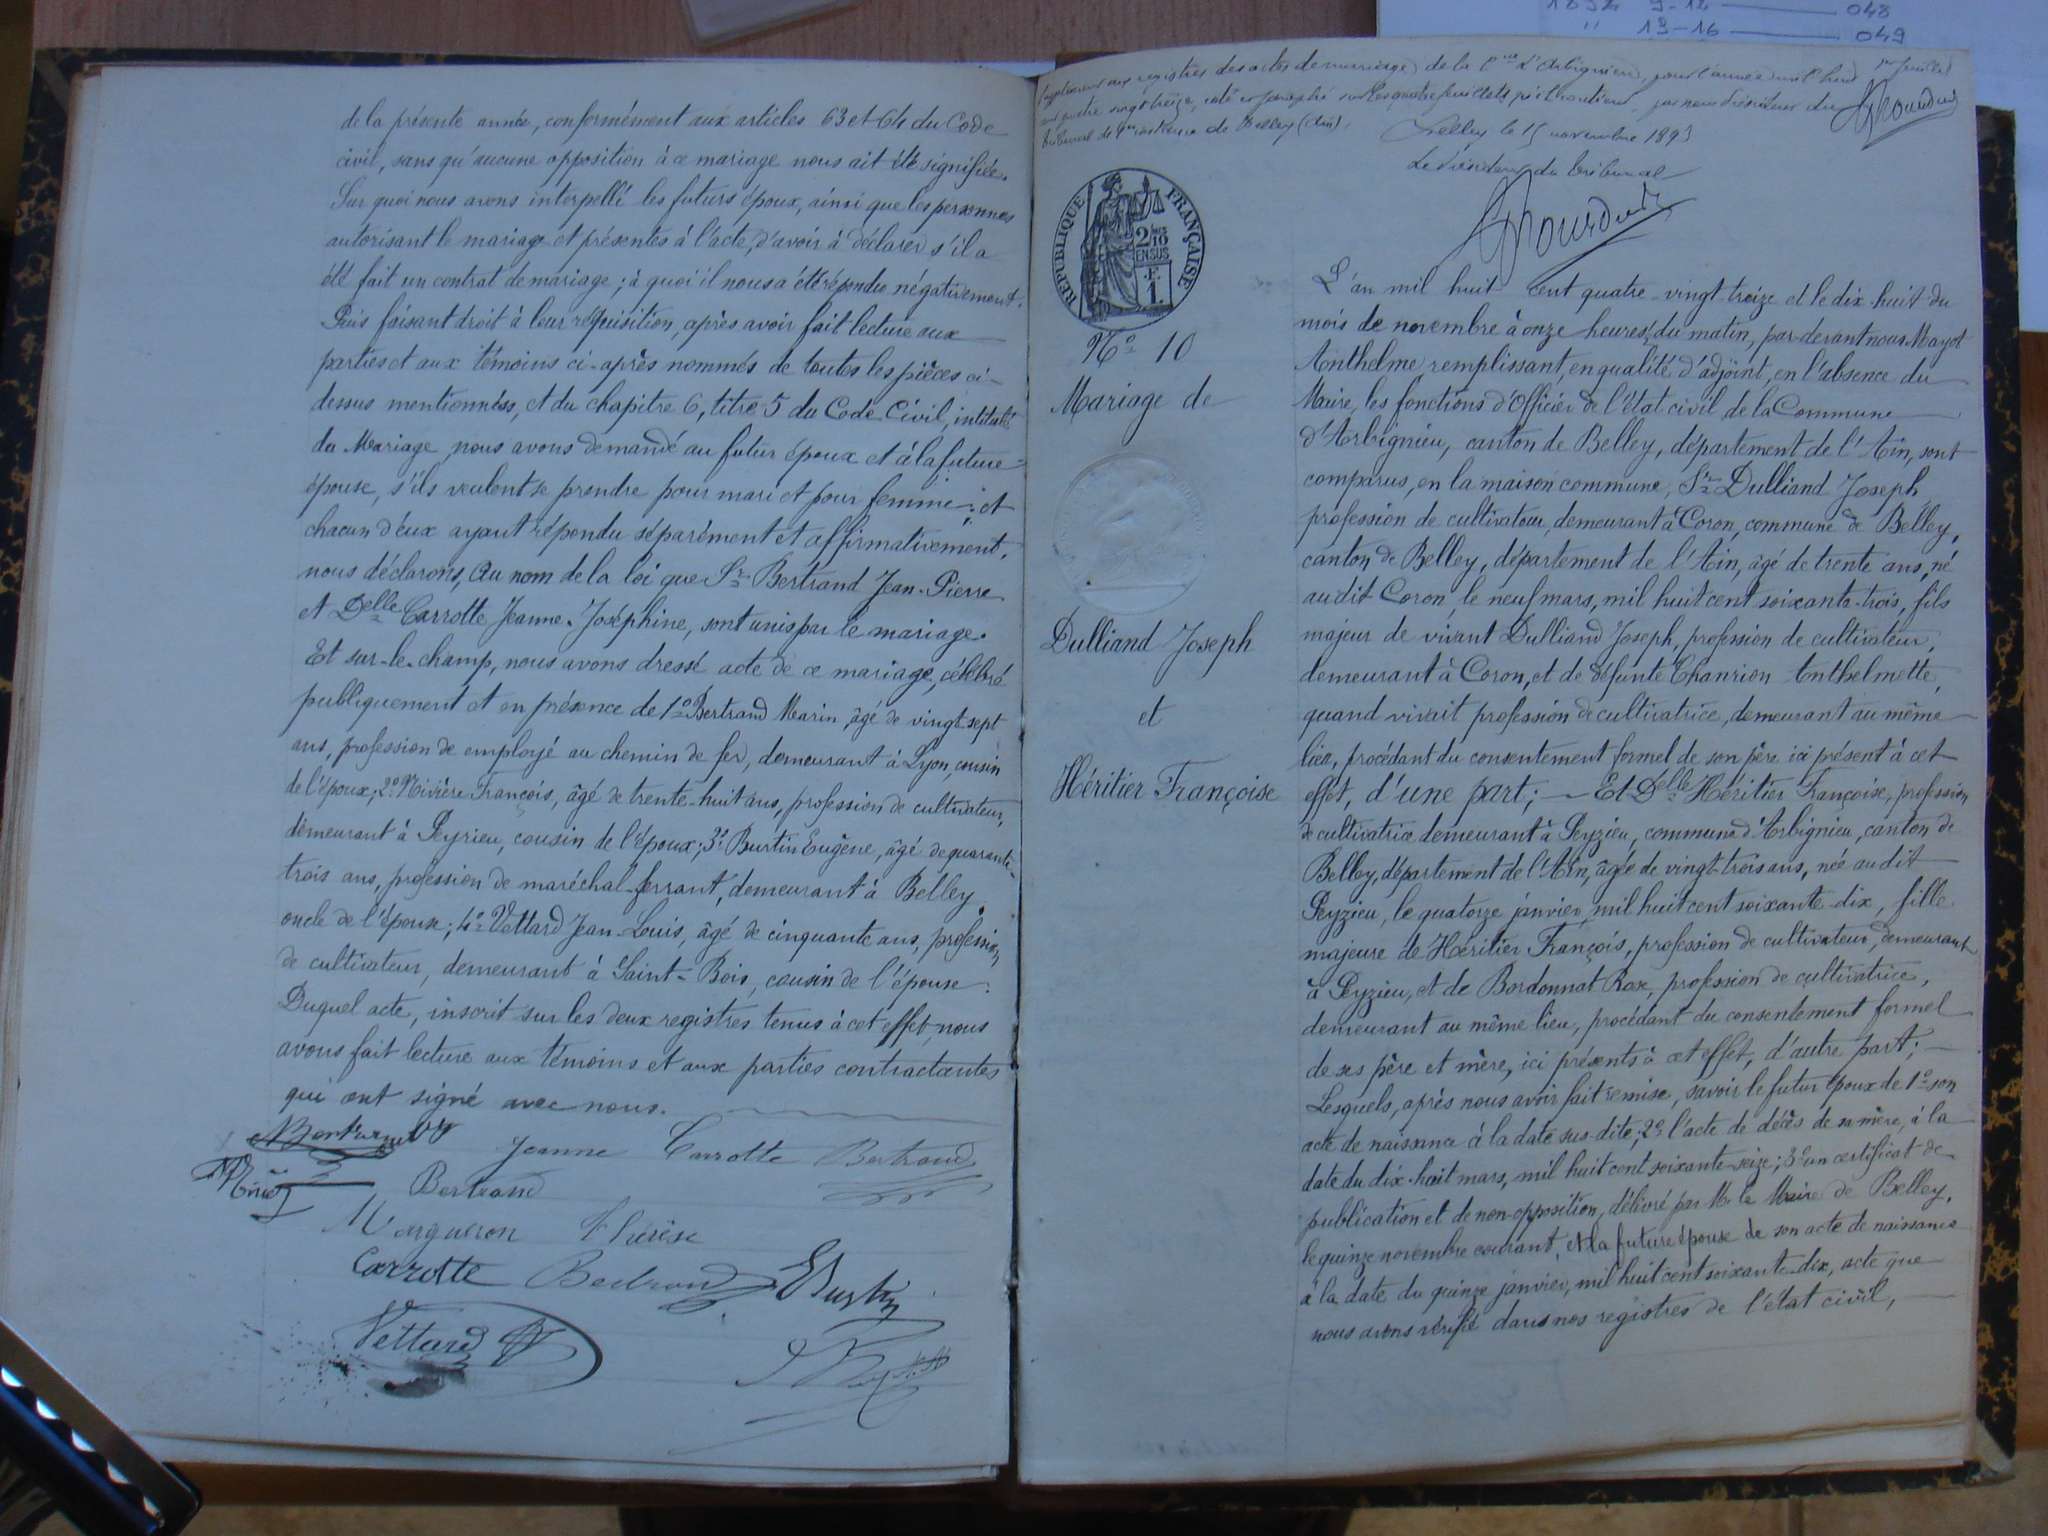 1892 9-12 — 048
" 13-16 — 049
de la présente année, conformément aux articles 63 et 64 du Code
civil, sans qu'aucune opposition à ce mariage nous ait été signifiée.
Sur quoi nous avons interpellé les futurs époux, ainsi que les personnes
autorisant le mariage et présentes à l'acte, d'avoir à déclarer s'il a
été fait un contrat de mariage ; à quoi il nous a été répondu négativement.
Puis faisant droit à leur réquisition, après avoir fait lecture aux
parties et aux témoins ci-après nommés de toutes les pièces ci-
dessus mentionnées, et du chapitre 6, titre 5 du Code Civil, intitulé
du Mariage, nous avons demandé au futur époux et à la future
épouse, s'ils veulent se prendre pour mari et pour femme ; et
chacun d'eux ayant répondu séparément et affirmativement,
nous déclarons, au nom de la loi que Sr Bertrand Jean-Pierre
et Delle Carrotte Jeanne-Joséphine, sont unis par le mariage.
Et sur-le-champ, nous avons dressé acte de ce mariage, célébré
publiquement et en présence de 1º Bertrand Marin, âgé de vingt-sept
ans, profession de employé au chemin de fer, demeurant à Lyon, cousin
de l'époux ; 2º Rivière François, âgé de trente-huit ans, profession de cultivateur,
demeurant à Peyrieu, cousin de l'époux ; 3º Burtin Eugène, âgé de quarante-
trois ans, profession de maréchal-ferrant, demeurant à Belley,
oncle de l'épouse ; 4º Vettard Jean-Louis, âgé de cinquante ans, profession
de cultivateur, demeurant à Saint-Bois, cousin de l'épouse.
Duquel acte, inscrit sur les deux registres tenus à cet effet, nous
avons fait lecture aux témoins et aux parties contractantes
qui ont signé avec nous.
Jeanne Carrotte Bertrand
Bertrand
Margueron Thérèse
Carrotte Bertrand EBurtin
Vettard
Supplément aux registres des actes de mariage de la Cne d'Arbignieu, pour l'année mil huit
cent quatre vingt treize, coté et paraphé sur les quatre feuillets par nous Président du
tribunal de 1ère instance de Belley (Ain).
Belley le 15 novembre 1893
Le Président du tribunal
RÉPUBLIQUE FRANÇAISE
2/10
EN SUS
F.
1.
Nº 10
Mariage de
Dulliand Joseph
et
Héritier Françoise
L'an mil huit cent quatre-vingt-treize et le dix-huit du
mois de novembre à onze heures du matin, par-devant nous Mayot
Anthelme remplissant, en qualité d'adjoint, en l'absence du
Maire, les fonctions d'Officier de l'état civil de la Commune
d'Arbignieu, canton de Belley, département de l'Ain, sont
comparus, en la maison commune, Sr Dulliand Joseph,
profession de cultivateur, demeurant à Coron, commune de Belley,
canton de Belley, département de l'Ain, âgé de trente ans, né
au dit Coron, le neuf mars, mil huit cent soixante-trois, fils
majeur de vivant Dulliand Joseph, profession de cultivateur,
demeurant à Coron, et de défunte Chanrion Anthelmette,
quand vivait profession de cultivatrice, demeurant au même
lieu, procédant du consentement formel de son père ici présent à cet
effet, d'une part ; — Et Delle Héritier Françoise, profession
de cultivatrice demeurant à Peyzieu, commune d'Arbignieu, canton de
Belley, département de l'Ain, âgée de vingt-trois ans, née au dit
Peyzieu, le quatorze janvier, mil huit cent soixante-dix, fille
majeure de Héritier François, profession de cultivateur, demeurant
à Peyzieu, et de Bordonnat Rose, profession de cultivatrice,
demeurant au même lieu, procédant du consentement formel
de ses père et mère, ici présents à cet effet, d'autre part ; —
Lesquels, après nous avoir fait remise, savoir le futur époux de 1º son
acte de naissance à la date sus-dite ; 2º l'acte de décès de sa mère, à la
date du dix-huit mars, mil huit cent soixante-seize ; 3º un certificat de
publication et de non-opposition, délivré par Mr le Maire de Belley,
le quinze novembre courant, et la future épouse de son acte de naissance
à la date du quinze janvier, mil huit cent soixante-dix, acte que
nous avons vérifié dans nos registres de l'état civil, —